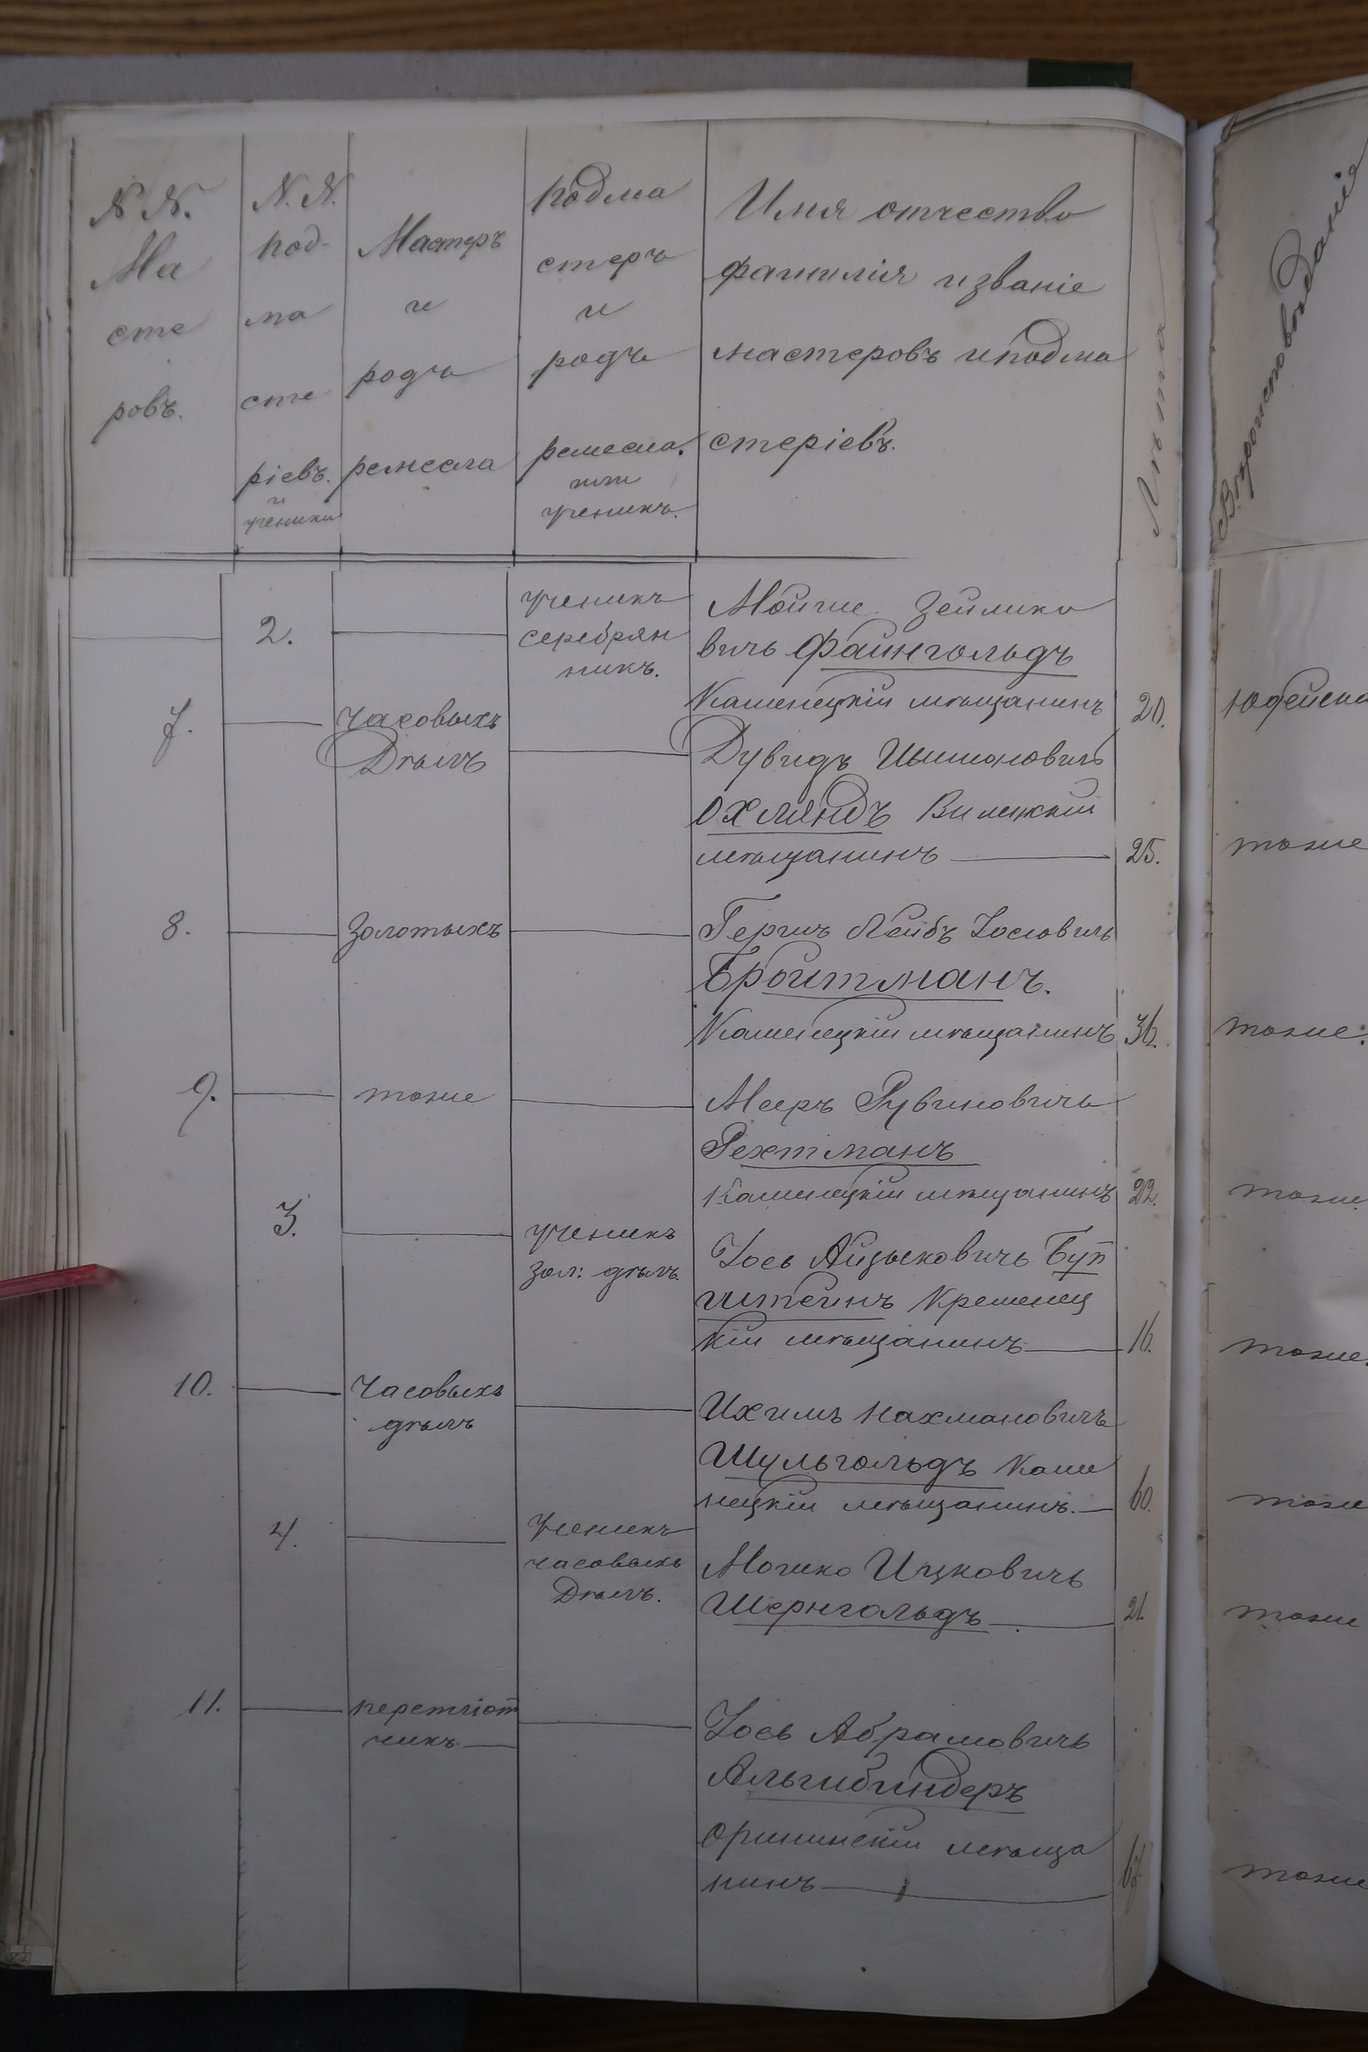 N. N. Ма сте ровъ.
N. N. под- ма сте ріевъ. и ученики
Мастеръ и родъ ремесла
подма стеръ и родъ ремесла. или ученикъ.
Имя отчество
фамилія и званіе
мастеровъ и подма
стеріевъ.
Лѣта
Вѣроисповѣданія
2.
ученикъ
серебрян
никъ.
Мошие Зейлико
вичъ Файнгольдъ
Каменецкій мѣщанинъ 20. Юдейска
7. часовыхъ
Дѣлъ
Дувидъ Шимоновичъ
Охляндъ
мѣщанинъ 25. тоже
8. Золотыхъ Гершъ Лейбъ Іосіовичъ
Бройтманъ.
Каменецкій мѣщанинъ 36. тоже.
9. тоже Мееръ Рувиновичъ
Рехтманъ
Каменецкій мѣщанинъ 22. тоже.
3. ученикъ
зол: дѣлъ.
Іось Айзыковичъ
штейнъ Кременец
кій мѣщанинъ 16. тоже.
10. Часовыхъ
дѣлъ
Ихилъ Нахмановичъ
Шульгольдъ Каме
нецкій мѣщанинъ. 60. тоже
4. Ученикъ
часовыхъ
Дѣлъ.
Мошко Ицковичъ
Шернгольдъ 21. тоже
11. переплiот
чикъ
Іось Абрамовичъ
Альтибиндеръ
Орининскій мѣща
нинъ 67. тоже